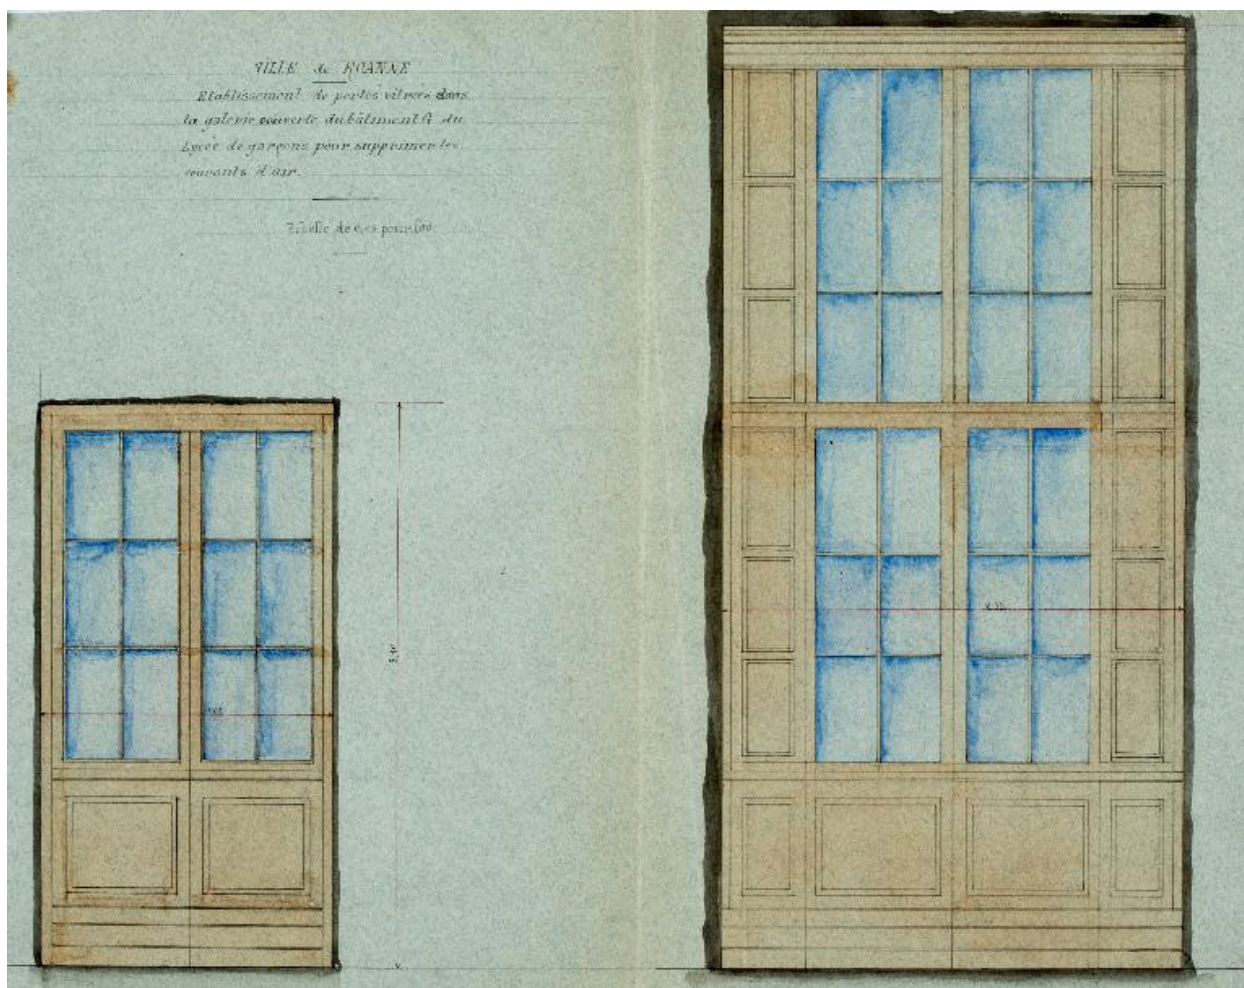 VILLE de ROANNE
Etablissement de portes vitrées dans
la galerie couverte du bâtiment G du
Lycée de garçons pour supprimer les
courants d'air.
Echelle de 0,05 pour